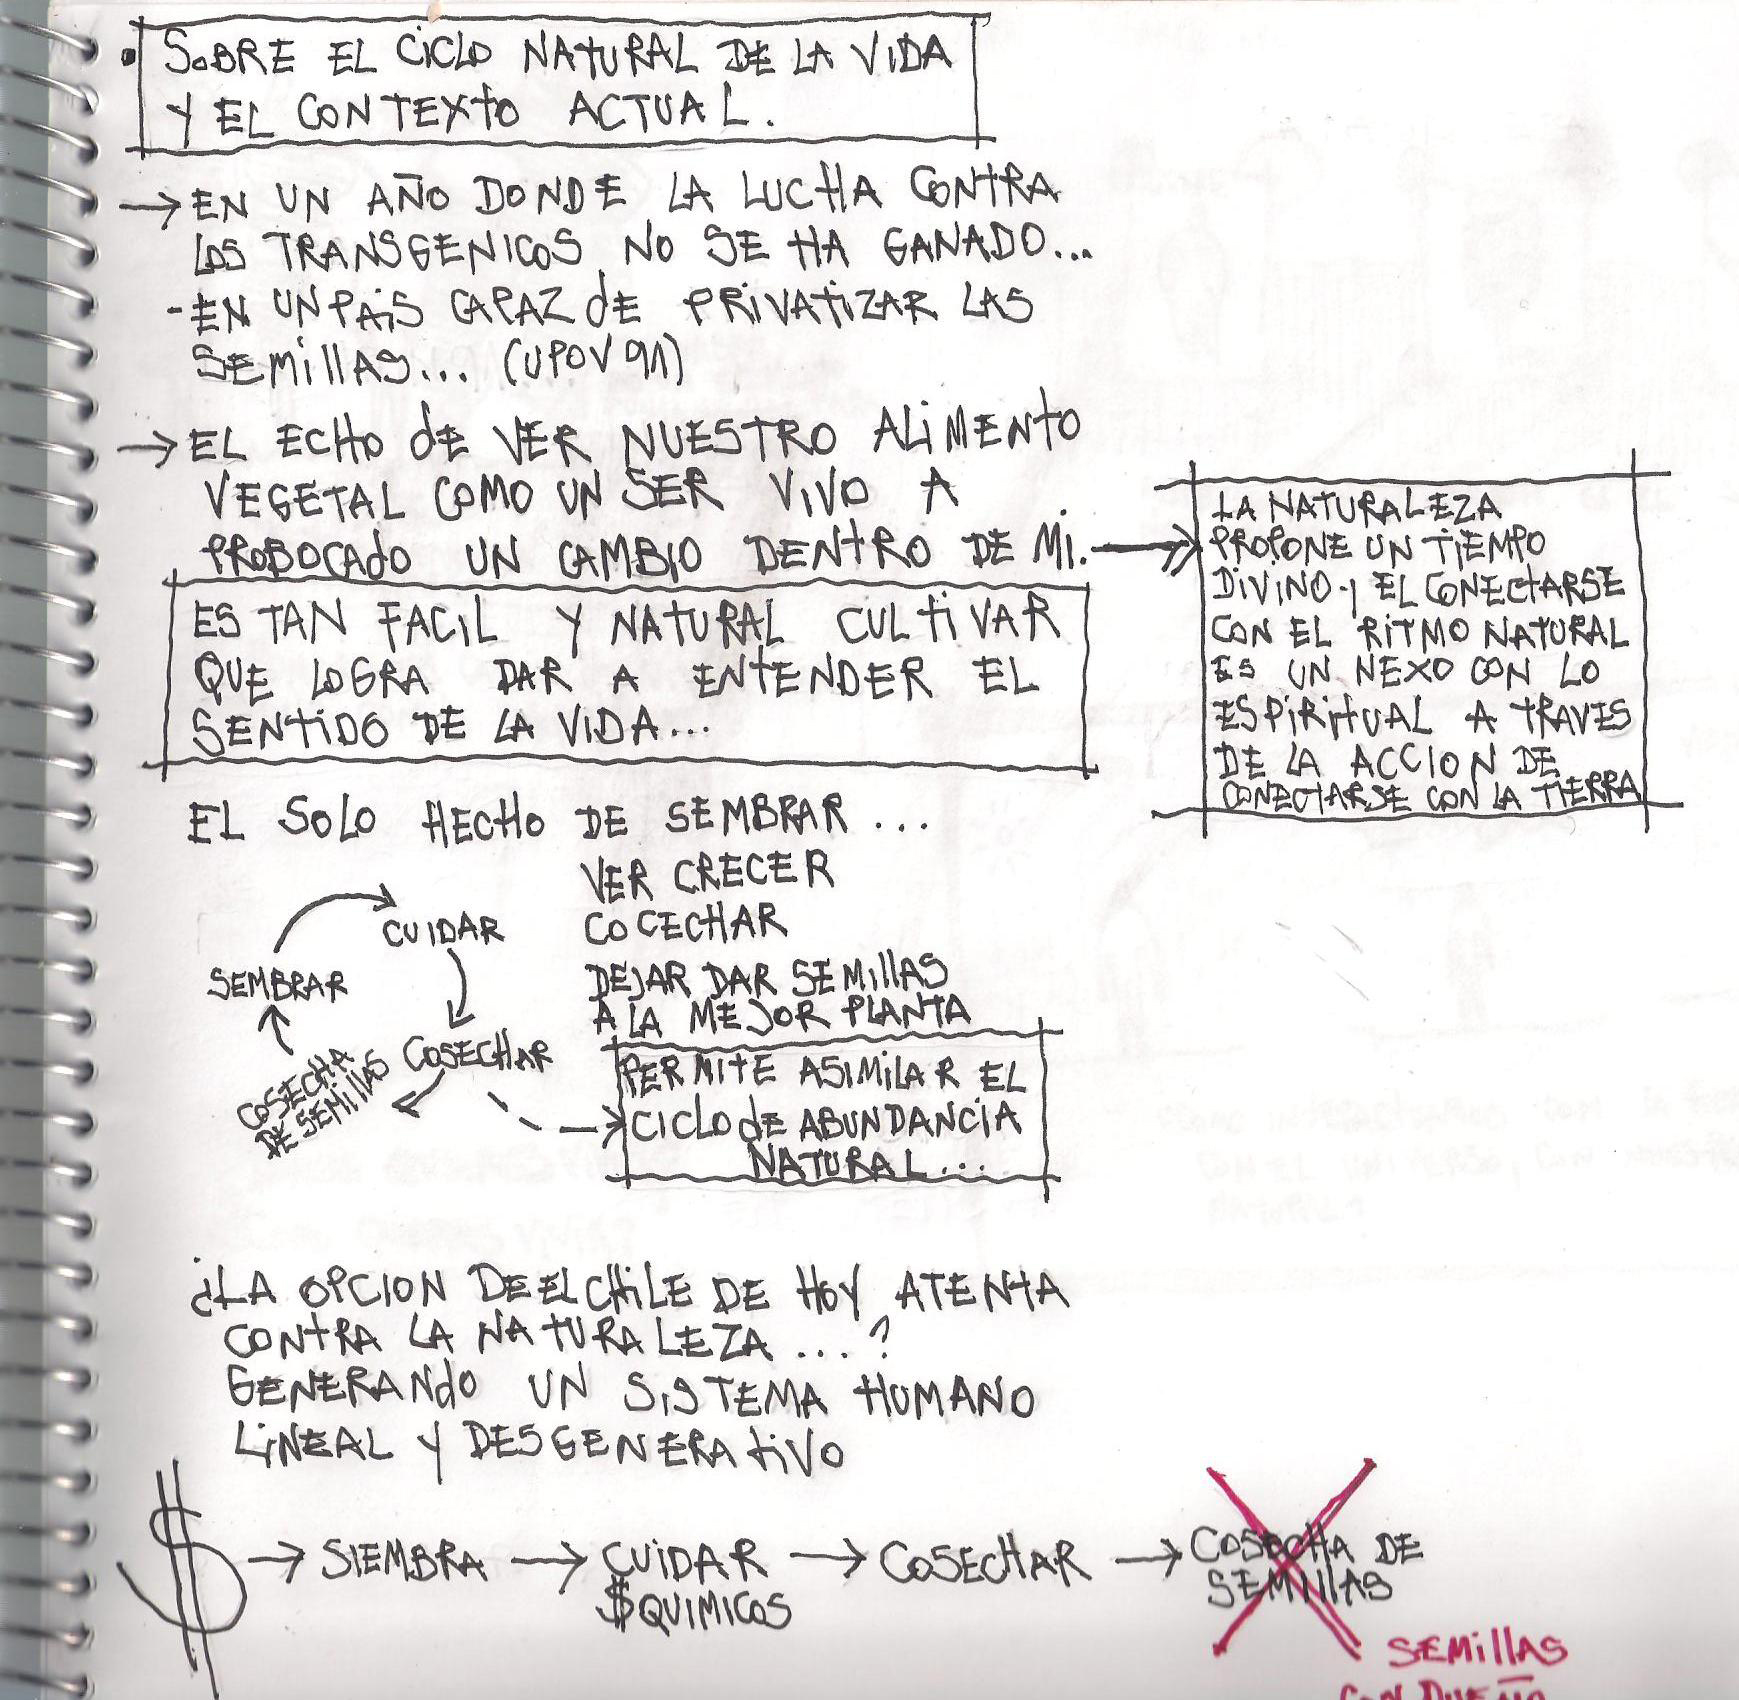 • SOBRE EL CICLO NATURAL DE LA VIDA
Y EL CONTEXTO ACTUAL.
→ EN UN AÑO DONDE LA LUCHA CONTRA
LOS TRANSGENICOS NO SE HA GANADO...
- EN UN PAIS CAPAZ dE PRIVATIZAR LAS
SEMILLAS... (UPOV 91)
→ EL ECHO dE VER NUESTRO ALIMENTO
VEGETAL COMO UN SER VIVO A
PROBOCADO UN CAMBIO DENTRO DE MI. →
LA NATURALEZA
PROPONE UN TIEMPO
DIVINO Y EL CONECTARSE
CON EL RITMO NATURAL
ES UN NEXO CON LO
ESPIRITUAL A TRAVES
DE LA ACCION DE
CONECTARSE CON LA TIERRA
ES TAN FACIL Y NATURAL CULTIVAR
QUE LOGRA DAR A ENTENDER EL
SENTIDO DE LA VIDA...
EL SOLO HECHO DE SEMBRAR...
VER CRECER
COCECHAR
DEJAR DAR SEMILLAS
A LA MEJOR PLANTA
PERMITE ASIMILAR EL
CICLO dE ABUNDANCIA
NATURAL...
SEMBRAR
CUIDAR
COSECHAR
COSECHA
DE SEMILLAS
¿LA OPCION DE EL CHILE DE HOY ATENTA
CONTRA LA NATURALEZA...?
GENERANdO UN SISTEMA HUMANO
LINEAL Y DESGENERATIVO
$ → SIEMBRA → CUIDAR → COSECHAR → COSECHA DE
$QUIMICOS
SEMILLAS
SEMILLAS
CON DUEÑO